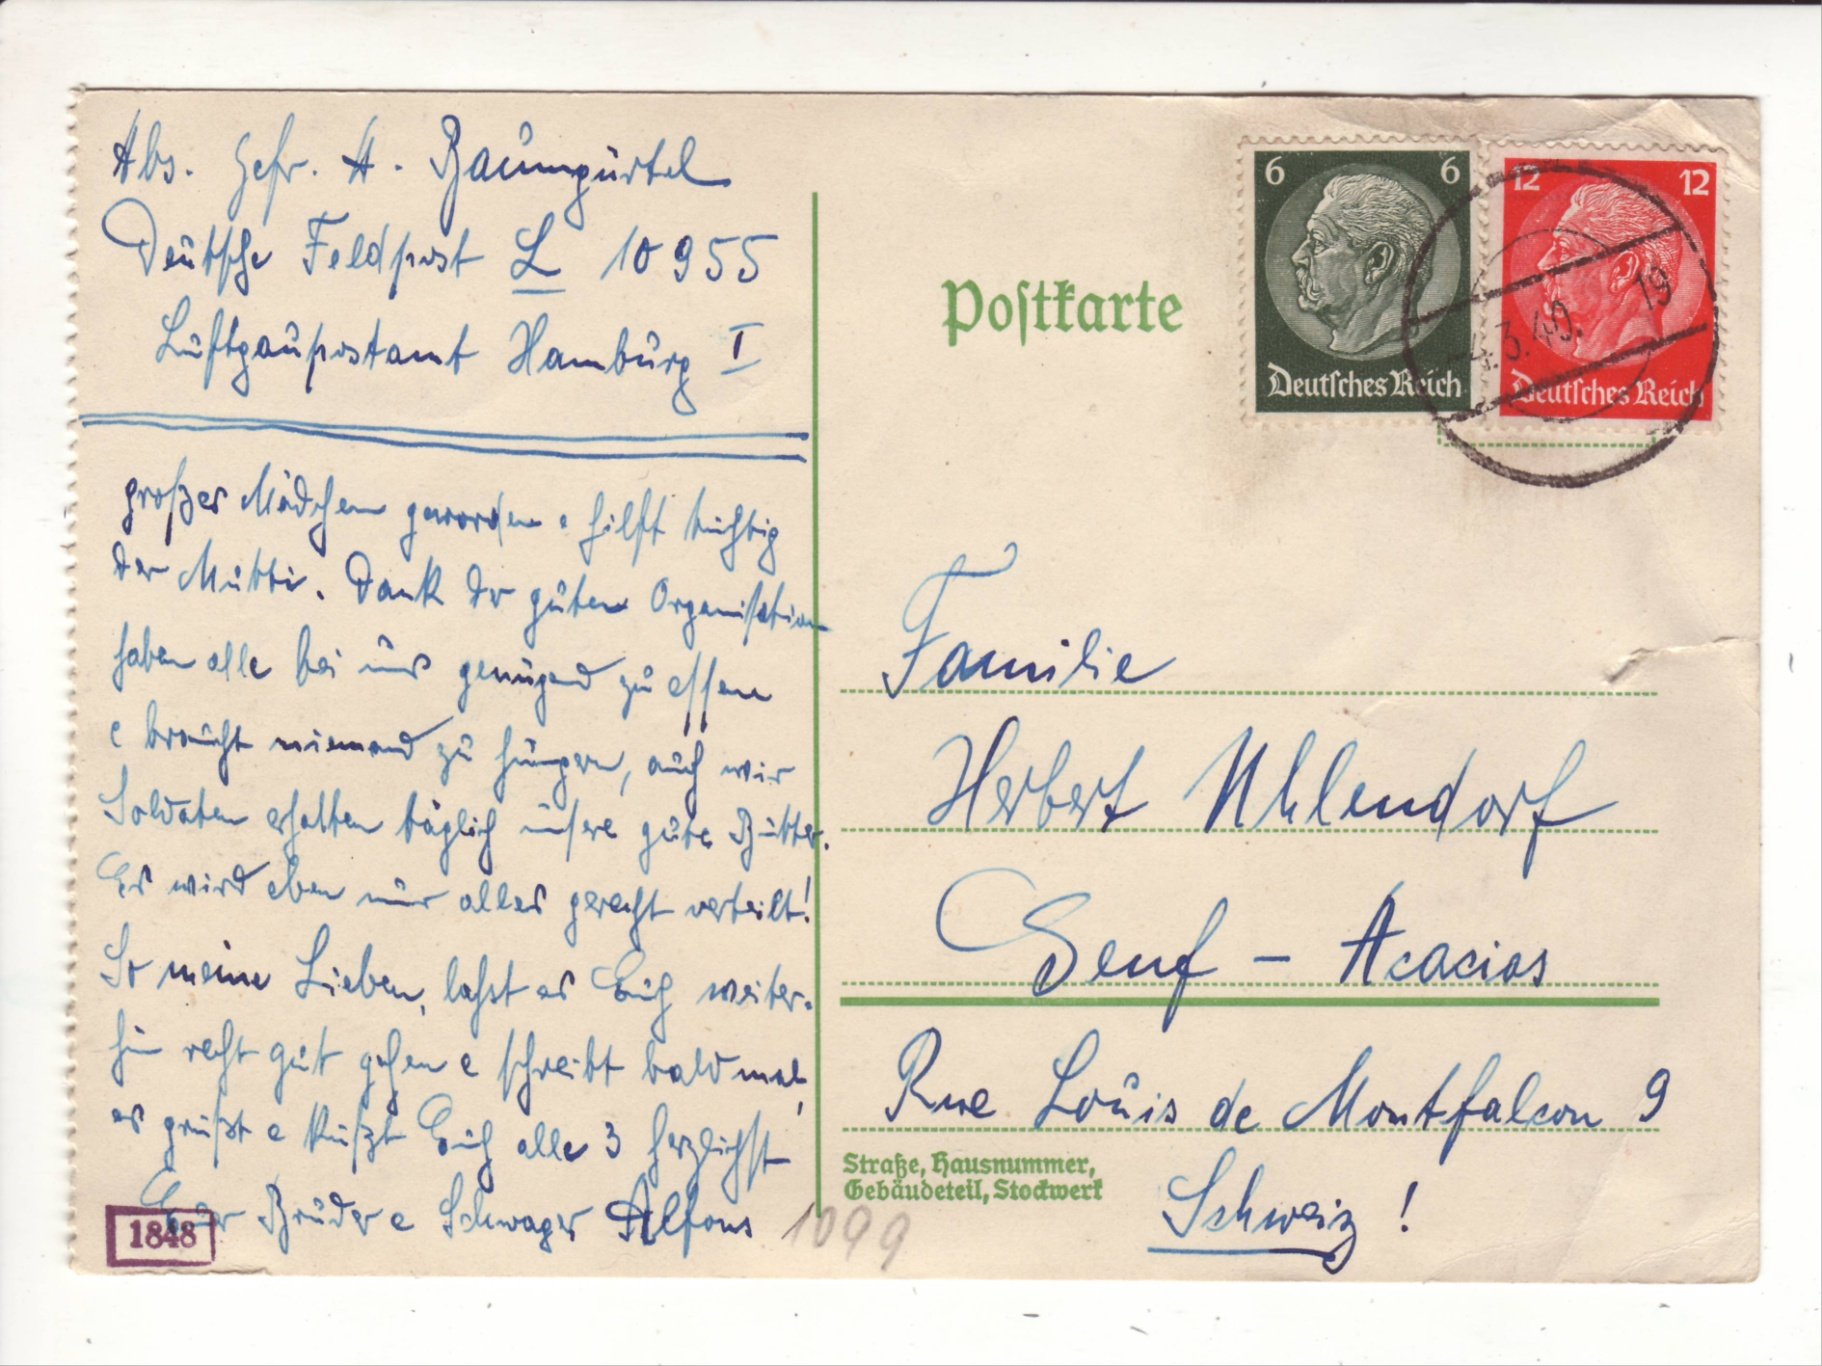 Abs. Gefr. A. Baumgürtel
Deutsche Feldpost L 10955
Luftgaupostamt Hamburg I
großes Mädchen geworden e hilft tüchtig
der Mutti. Dank der guten Organisation
haben alle bei uns genügend zu essen
e braucht niemand zu hungern, auch wir
Soldaten erhalten täglich unsere gute Butter.
Es wird eben nur alles gerecht verteilt!
So meine Lieben, laßt es Euch weiter-
hin recht gut gehen e schreibt bald mal,
es grüßt e küßt Euch alle 3 herzlichst
Euer Bruder e Schwager Alfons
1848
1099
Postkarte
6 6
Deutsches Reich
12 12
Deutsches Reich
-4.3.40. 19
Familie
Herbert Uhlendorf
Genf - Acacias
Rue Louis de Montfalcon 9
Straße, Hausnummer,
Gebäudeteil, Stockwerk
Schweiz !